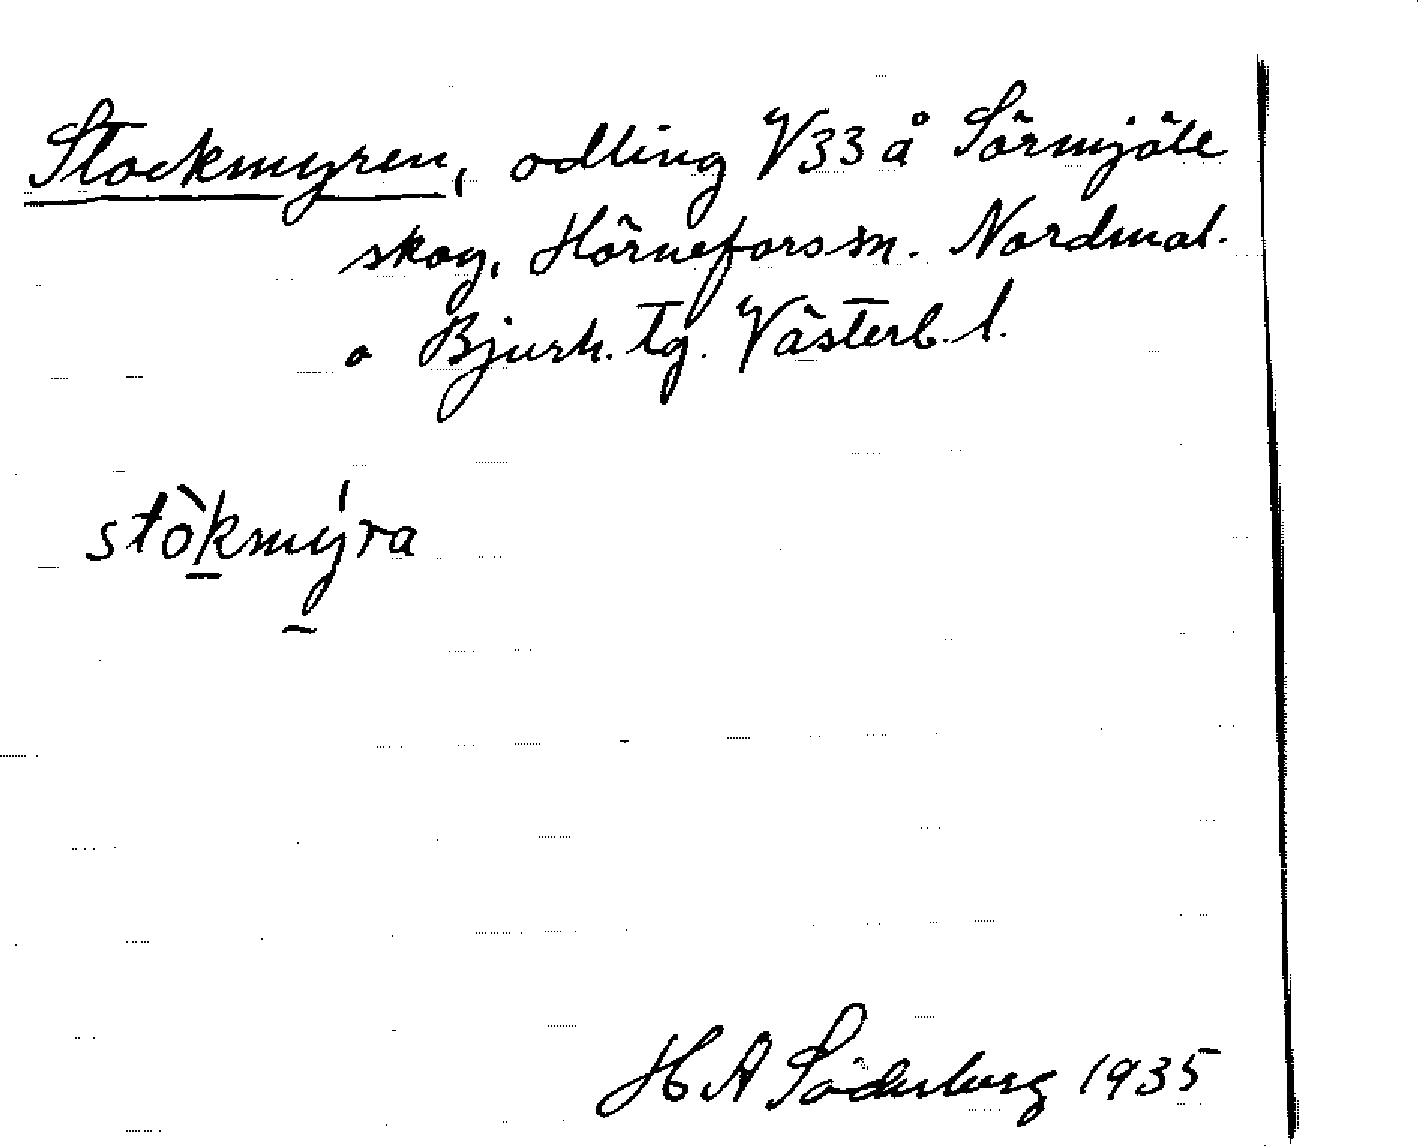 Stockmyren, odling V33 å Sörmjöle
skog, Hörnefors sn. Nordmal.
o Bjurh. tg. Västerb. l.
stòkmýra
H A Söderberg 1935